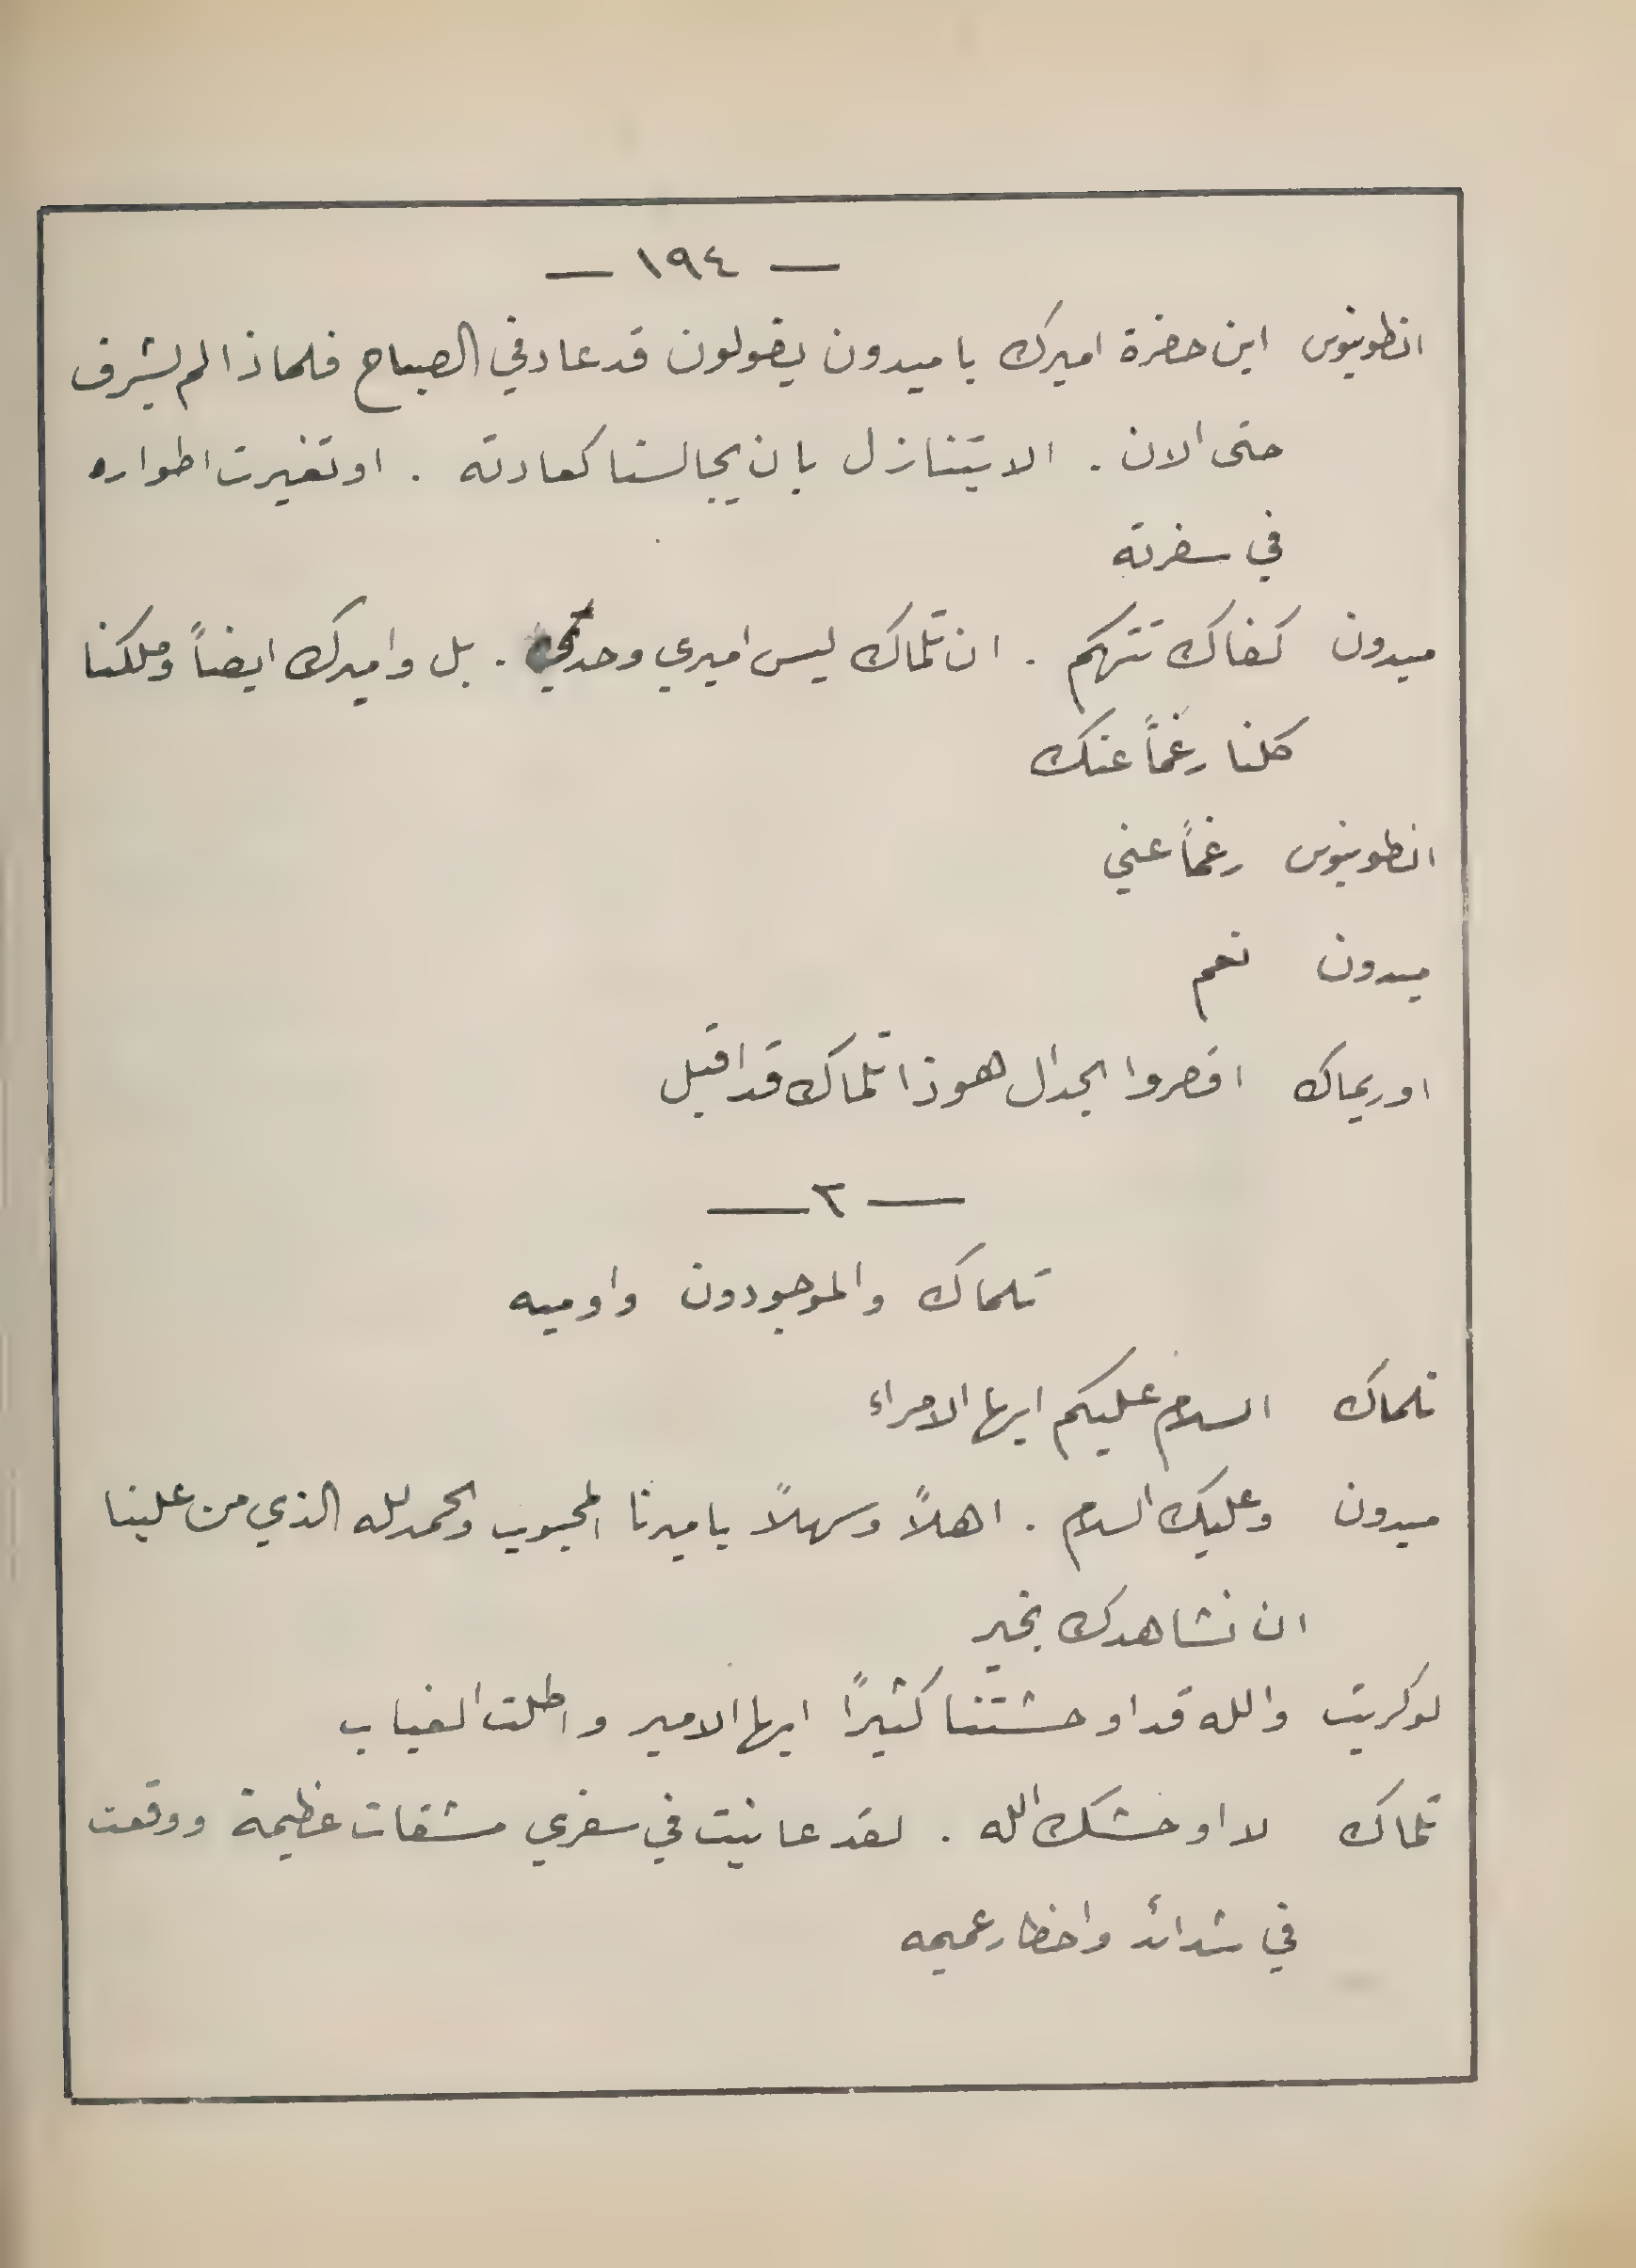 — ١٩٤ —
انطونيوس اين حضرة اميرك يا ميدون يقولون قد عاد في الصباح فلماذا لم يشرف
حتى الان . الا يتنازل بان يجالسنا كعادته . او تغيرت اطواره
في سفرته
ميدون كفاك تتهكم . ان تلماك ليس اميري وحدي . بل واميرك ايضاً وملكنا
كلنا رغماً عنك
انطونيوس رغماً عني
ميدون نعم
اوريماك اقصروا الجدال هوذا تلماك قد اقبل
— ٢ —
تلماك والموجودون واوميه
تلماك السلام عليكم ايها الامراء
ميدون وعليك السلام . اهلاً وسهلاً يا ميرنا المحبوب والحمد لله الذي من علينا
ان نشاهدك بخير
لوكريت والله قد اوحشتنا كثيرًا ايها الامير واطلت الغياب
تلماك لا اوحشك الله . لقد عانيت في سفري مشقات عظيمة ووقعت
في شدائد واخطار عميمه